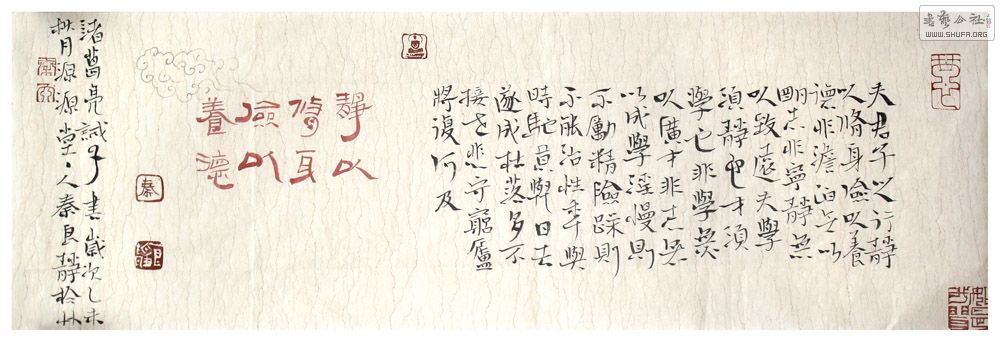 書藝公社
WWW.SHUFA.ORG
夫君子之行靜
以脩身儉以養
德非澹泊無以
明志非寧靜無
以致遠夫學
須靜也才須
學也非學無
以廣才非志無
以成學淫慢則
不勵精險躁則
不能治性年與
時馳意日去
遂成枯落多不
接世悲守窮廬
將復何及
靜以
脩身
儉以
養德
諸葛亮誡子書歲次乙未
月源源堂人秦良靜於
秦